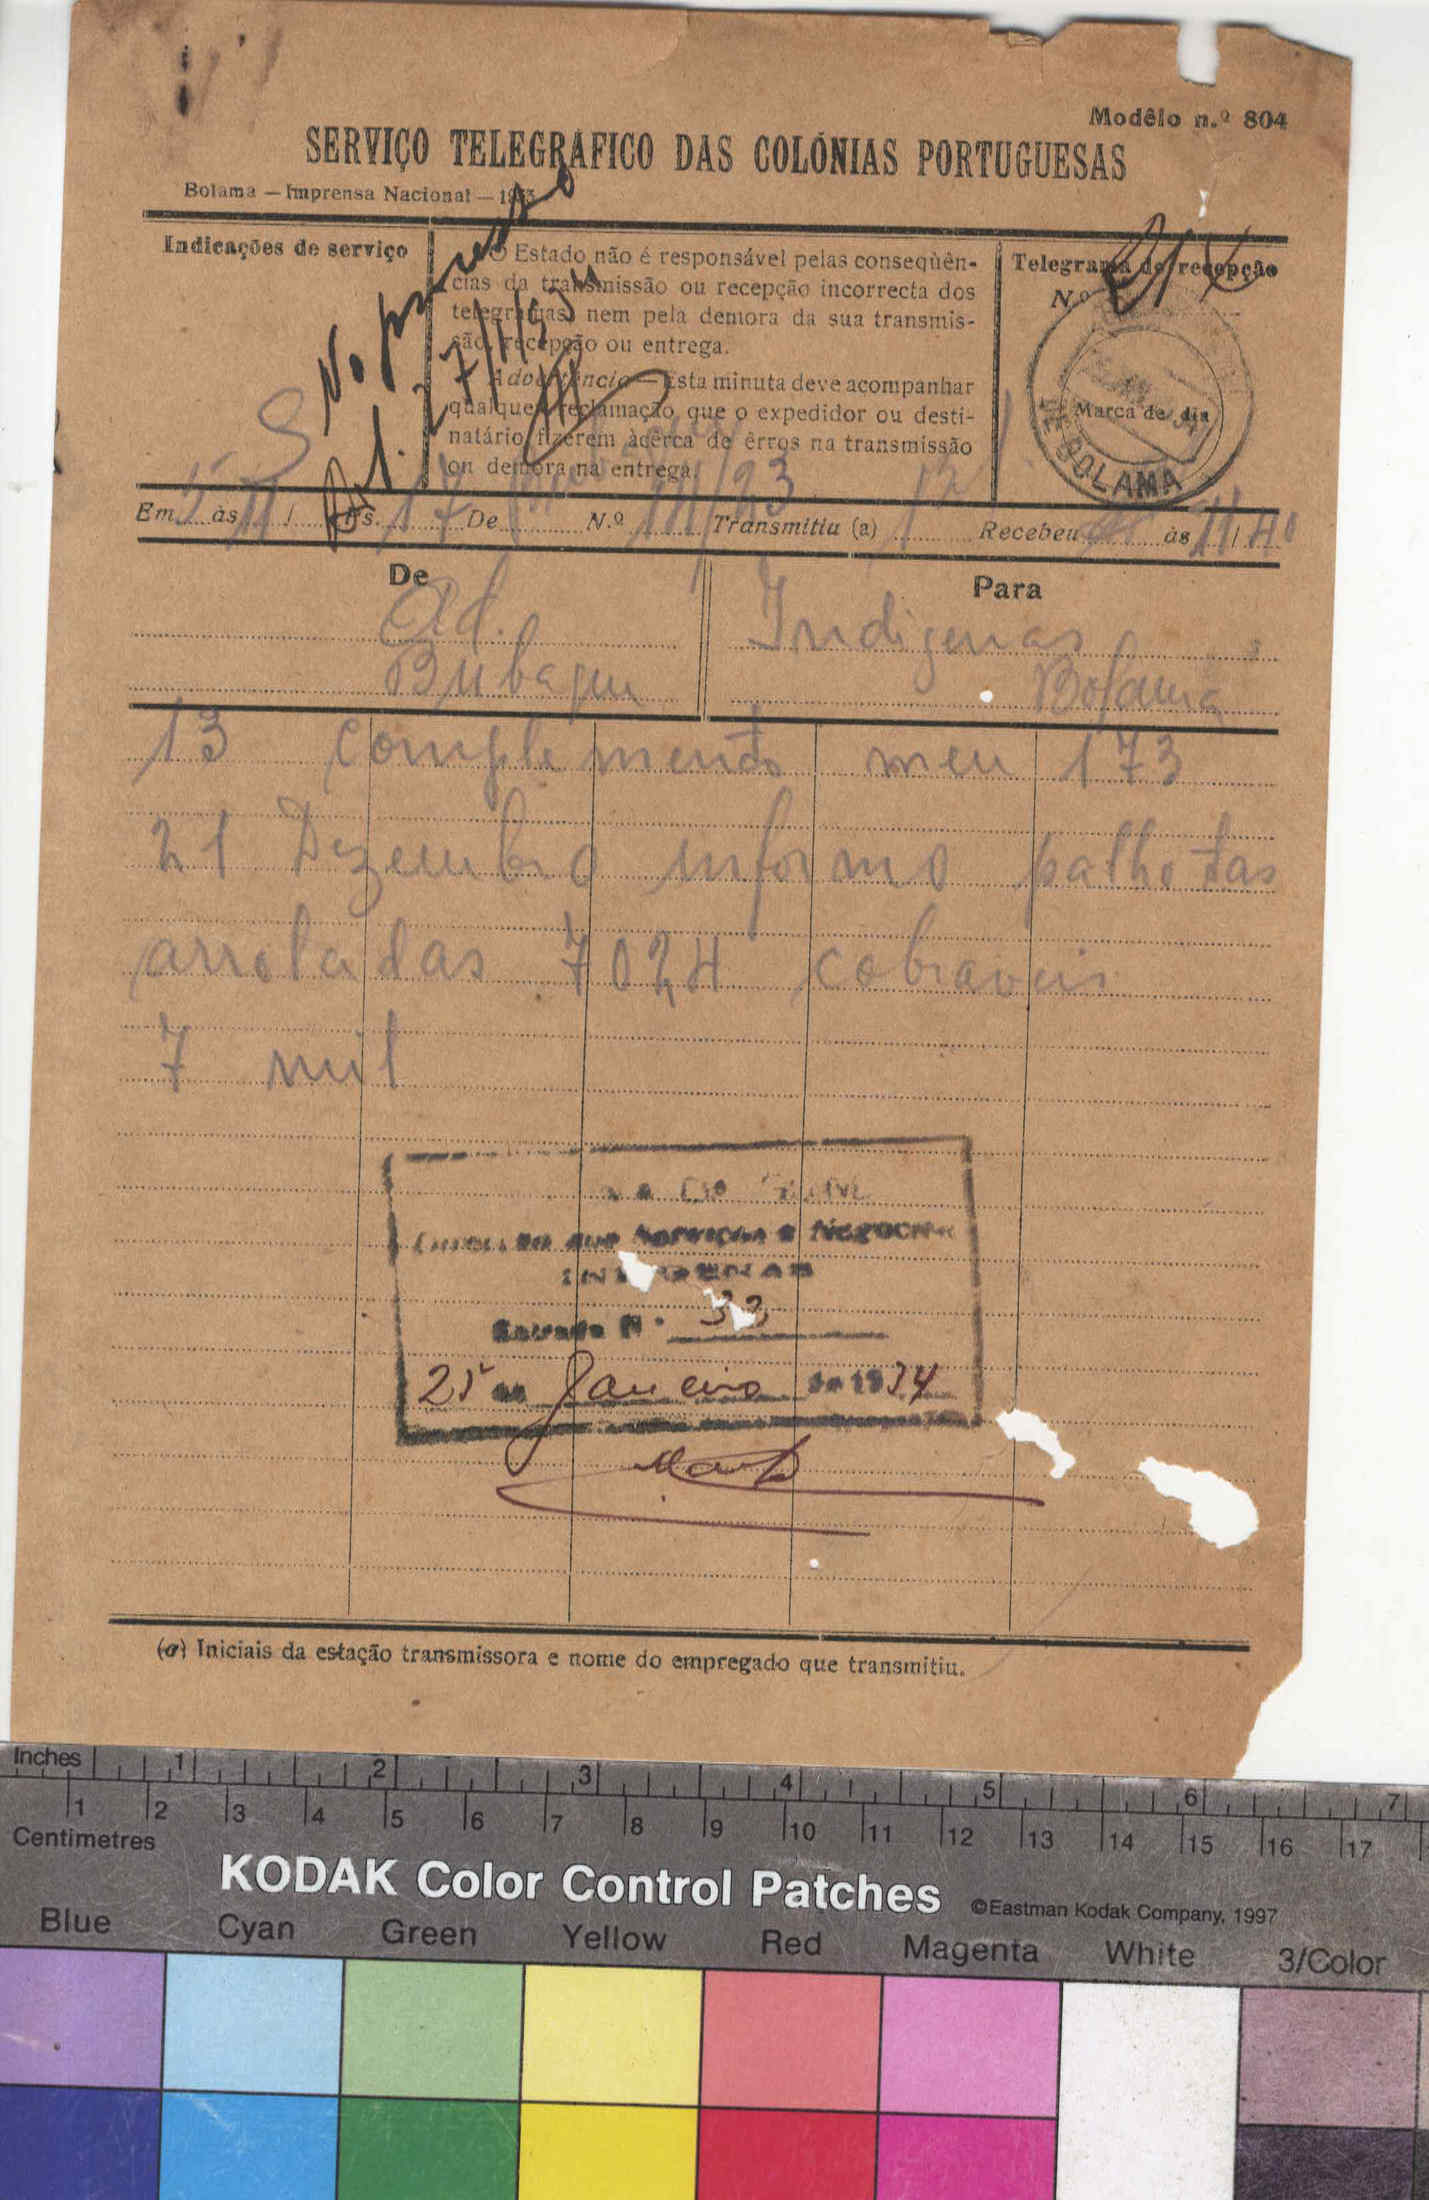 Modêlo n.º 804
SERVIÇO TELEGRÁFICO DAS COLÓNIAS PORTUGUESAS
Bolama — Imprensa Nacional — 1933
Indicações de serviço
O Estado não é responsável pelas conseqüên-
cias da transmissão ou recepção incorrecta dos
telegramas, nem pela demora da sua transmis-
são, recepção ou entrega.
Advertência — Esta minuta deve acompanhar
qualquer reclamação que o expedidor ou desti-
natário fizerem àcêrca de êrros na transmissão
ou demora na entrega.
Telegrama de recepção
N.º
Marca de dia
DE BOLAMA
No processo
27/1/934
Em 5 às 11 / Ps. 17 De N.º 111/23 Transmitiu (a) 12 Recebeu às 11/40
De
Ad.
Bubaque
Para
Indigenas
Bolama
13 complemento meu 173
21 Dezembro informo palhotas
arroladas 7024 cobraveis
7 mil
Direcção dos Serviços e Negocios
INDIGENAS
Entrada N.º 33
25 de Janeiro de 1934
(a) Iniciais da estação transmissora e nome do empregado que transmitiu.
Inches 1 2 3 4 5 6 7
1 2 3 4 5 6 7 8 9 10 11 12 13 14 15 16 17
Centimetres
KODAK Color Control Patches ©Eastman Kodak Company, 1997
Blue Cyan Green Yellow Red Magenta White 3/Color